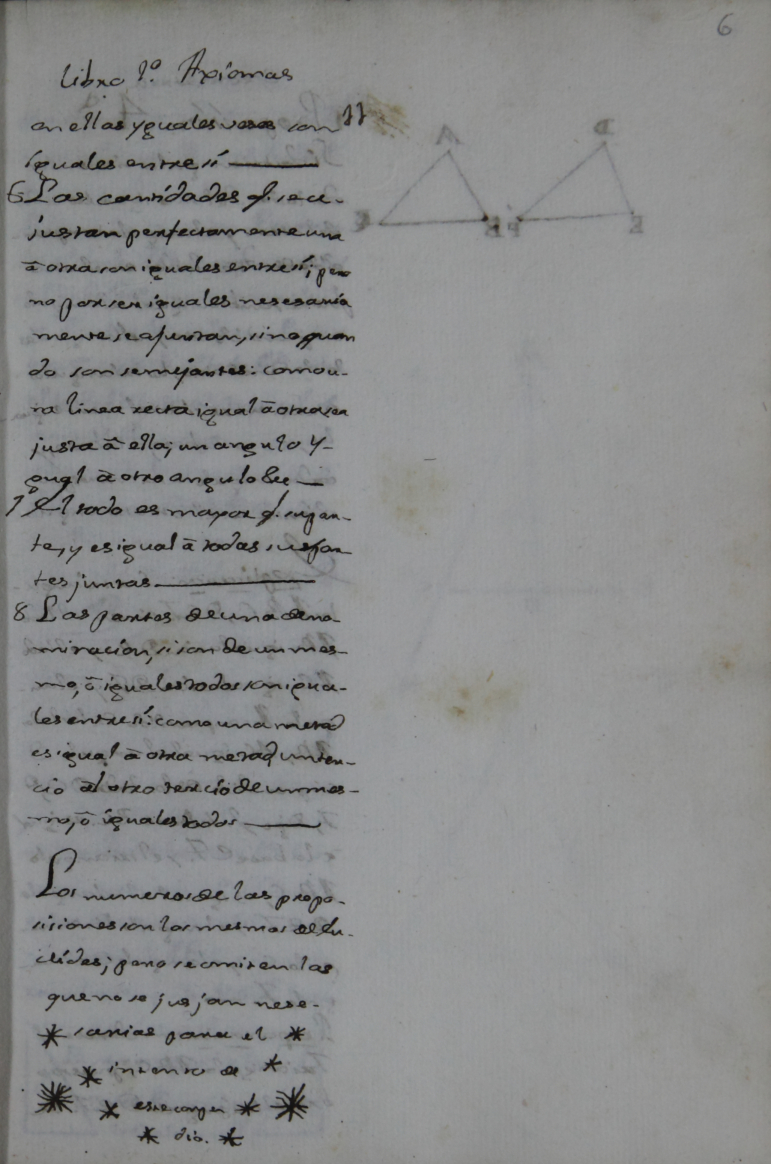 6
Libro 1º. Axiomas
11
en ellas yguales veses son
iguales entre sí
6 Las cantidades q. se a-
justan perfectamente una
â otra son iguales entre sí; pero
no por ser iguales nesesaria
mente se ajustan, sino quan
do son semejantes: como u-
na linea recta igual â otra se a
justa â ella; un angulo y-
gual â otro angulo &c
7 El todo es mayor q. su par-
te, y es igual â todas sus par
tes juntas
8 Las partes de una deno-
minacion, si son de un mes-
mo, ô iguales todos son igua-
les entre sí: como una metad
es igual â otra metad, un ter-
cio âl otro tercio de un mes-
mo, ô iguales todos
Los numeros de las propo-
siciones son los mesmos de Eu-
clides; pero se omiten las
que no se jusjan nese-
sarias para el
intento de
este compen
dio.
A D
C B F E